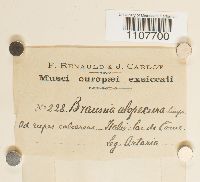 1107700
F. RENAULD & J. CARDOT
Musci europæi exsiccati
No 222. Braunia alopecura Limpr.
Ad rupes calcareas. Italia: Lac de Come.
leg. Artaria